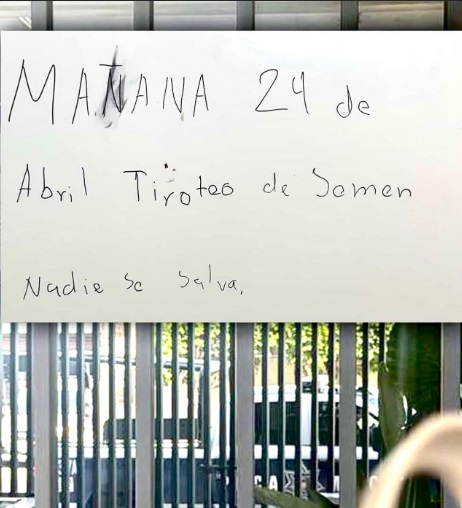 MAÑANA 24 de
Abril Tiroteo de Semen
Nadie se salva.